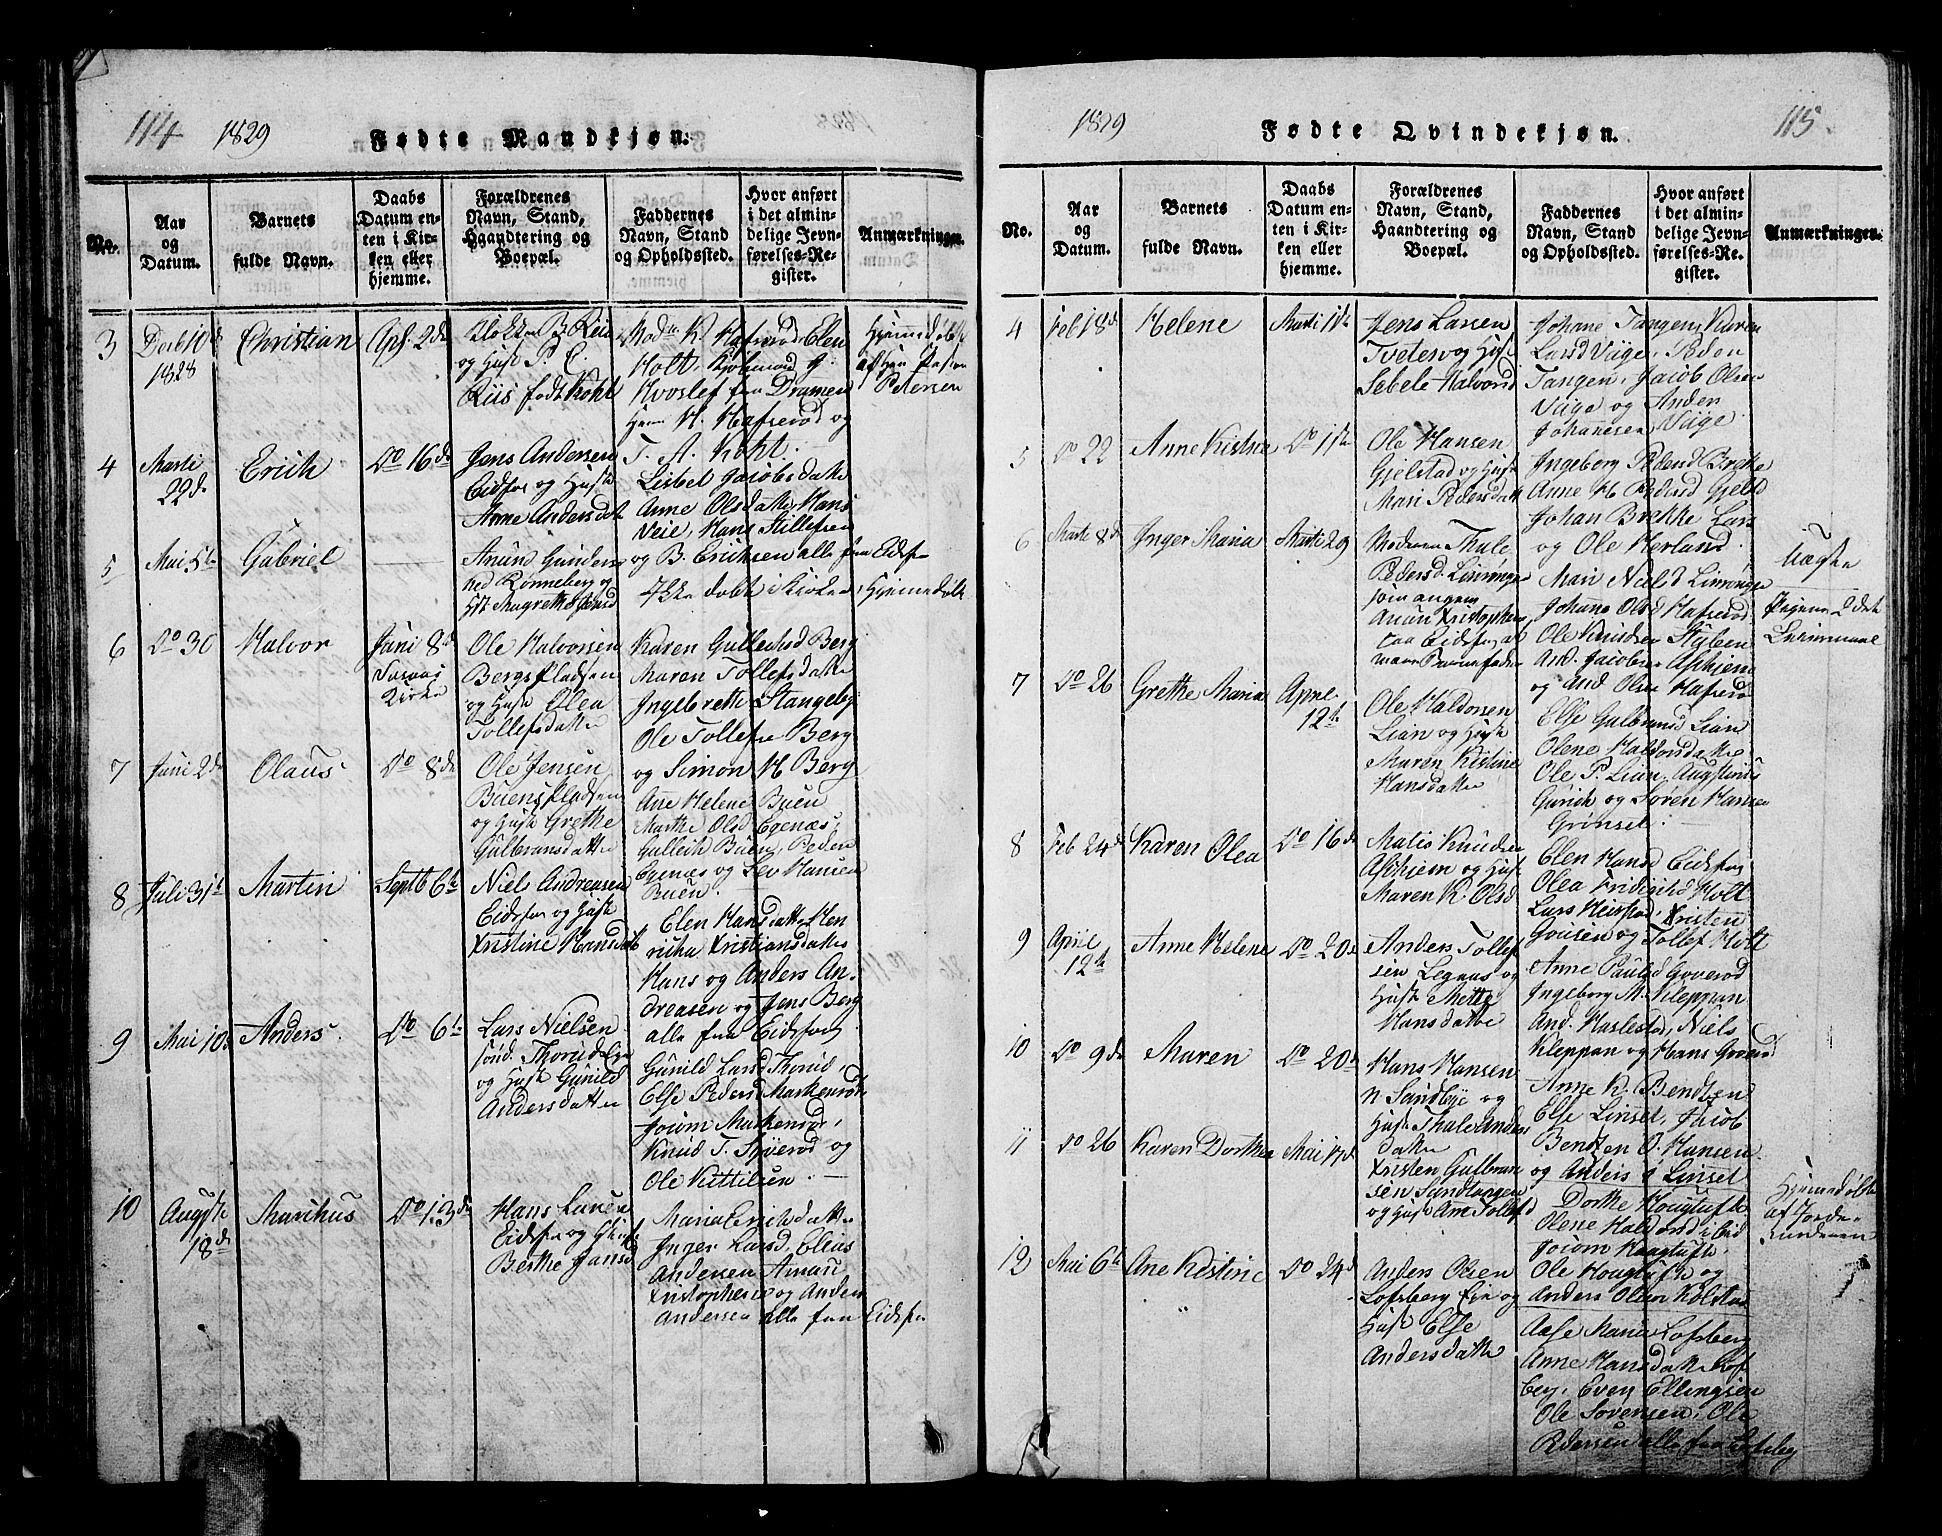 114 1829 Fødte Mandkjøn.
No.
Aar og Datum.
Barnets fulde Navn.
Daabs Datum enten i Kirken eller hjemme.
Forældrenes Navn, Stand, Haandtering og Boepæl.
Faddernes Navn, Stand og Opholdssted.
Hvor anført i det almindelige Jevnførelses-Register.
Anmærkninger.
3
Decb 10de
1828
Christian
Apr. 2de
og Hust. P. C.
Riis født Koht
Mod. K. Hafserød, Elen
Holt,
Hvoslef fra Dramen
H. Hafserød og
T. A. Koht
Hjemedøbt
af Hr. Pastor
Petersen
4
Marti
29de
Erich
Do 16de
Jens Andersen
Eidsfos og Hust
Anne Andersdatter
Lisbet Jacobsdatter
Anne Olsdatter, Hans
Veie, Hans Stillefsen
og B. Erichsen alle fra Eidsfos
5
Mai 5te
Gabriel
Anund Gunders
ved Rønneberg og
Hst. Magrethe Jensd
Ikke døbt i Kirken, Hjemedøbt
6
Do 30
Halvor
Juni 8de
Kirke
Ole Halvorsen
Bergs Pladsen
og Hust Olea
Tollefsdatter
Karen Gulleichsd Berg
Maren Tollefsdatter
Ingebrethe Stangeby
Ole Tollefsen Berg
og Simon H. Berg
7
Juni 2de
Olaus
Do 8de
Ole Jensen
Buens Pladsen
og Hust Grethe
Gulbransdatter
Ane Helene Buen
Marthe Olsd Egenæs
Gulleich Buen, Peder
Egenæs og Lev Hansen
Buen
8
Juli 31te
Martin
Septb 6te
Niels Andreasen
Eidsfos og Hust
Kristine Hansdatter
Elen Hansdatter, Hen
richa Kristiansdatter
Hans og Anders An-
dreasen og Jens Berg
alle fra Eidsfos
9
Mai 10de
Anders
Do 6te
Lars Nielsen
og Hust Gunild
Andersdatter
Gunild Larsd Thorud,
Else Pedersd Markerød
Joiom Markerød,
Knud T. Syverød og
Ole Kittilsen
10
Augste
18de
Marthus
Do 13de
Hans Larsen
Eidsfos og Hust
Berthe Jansd
Maria Erichsdatter
Inger Larsd, Elias
Andersen, Amun
Kristophersen og Anders
Andersen alle fra Eidsfos
1829 Fødte Qvindekjøn. 115
No.
Aar og Datum.
Barnets fulde Navn.
Daabs Datum enten i Kirken eller hjemme.
Forældrenes Navn, Stand, Haandtering og Boepæl.
Faddernes Navn, Stand og Opholdssted.
Hvor anført i det almindelige Jevnførelses-Register.
Anmærkninger.
4
Feb 18de
Helene
Marti 1te
Jens Larsen
Tveten og Hust
Sebele Halvorsd
Johane Tangen, Karen
Larsd Vüge, Peder
Tangen, Jacob Olsen
Vüge og Anders
Johannesen Vüge
5
Do 22
Anne Kistine
Do 1te
Ole Hansen
Gjelstad og Hust
Mari Pedersdatter
Ingeborg Pedersd Brekke
Anne H. Pedersd Gjelst
Johan Brekke, Lars
og Ole Herland
6
Marti 8de
Inger Maria
Marti 29
Moderen Thale
Pedersd Linnerønge
som angav
Anun Kristophersen
fra Eidsfos at
være Barnefader
Mari Nielsd Linnerønge
Johane Olsd Hafserød
Ole Knudsen Styben
And. Jacobsen Askjem
og And Olsen Hafserød
Uægte
7
Do 26
Grethe Maria
Aprie
12te
Ole Haldorsen
Lian og Hust
Maren Kistine
Hansdatter
Else Gulbransd Lian
Olene Haldorsdatter
Ole P. Lian, Augstinus
Gurich og Søren Hansen
Grinset
8
Feb 24de
Karen Olea
Do 16de
Matis Knudsen
Askjem og Hust
Maren K. Olsd
Elen Hansd Eidsfos
Olea Fridrichsd Holt
Lars Heirstad, Kristen
Gousen og Tollef Holt
9
Aprile
12te
Anne Helene
Do 20de
Anders Tollef
sen Legaas og
Hust Mette
Hansdatter
Anne Paulsd Goverød
Ingeborg M. Kleppan
And. Haslestad, Niels
Kleppan og Hans Goverød
10
Do 9de
Maren
Do 20de
Hans Hansen
N Sandbye og
Hust Thale Anders
datter
Anne K. Bendtsen
Else Linset, Jacob
Bendtsen, O. Hansen
og Anders Linset
11
Do 26
Karen Dorthea
Mai 17de
Kristen Gulbran
sen Sandtangen
og Hust An Tollefsd
Dorthe Hougtufte
Olene Haldorsd ibid
Joiom Haugtufte,
Ole Hougtufte og
Anders Olsen Kolstad
Hjemedøbt
af Jorde-
12
Mai 6te
Ane Kistine
Do 24de
Anders Olsen
Lofsberg Eie og
Hust Else
Andersdatter
Aase Maria Lofsberg
Anne Hansdatter Lofs
berg, Even Ellingsen
Ole Sørensen, Ole
Pedersen alle fra Lofsberg